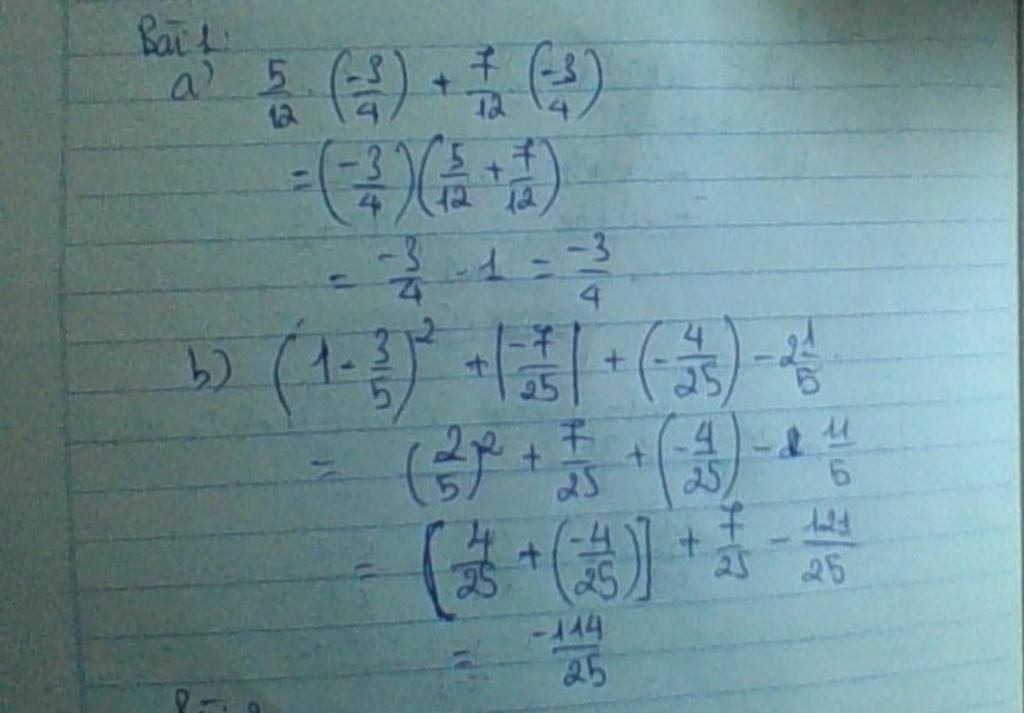 Bài 1:
a) 5/12 . (-3/4) + 7/12 (-3/4)
= (-3/4)(5/12 + 7/12)
= -3/4 . 1 = -3/4
b) (1 - 3/5)² + |-7/25| + (-4/25) - 2 1/5
= (2/5)² + 7/25 + (-4/25) - 11/5
= [4/25 + (-4/25)] + 7/25 - 121/25
= -114/25